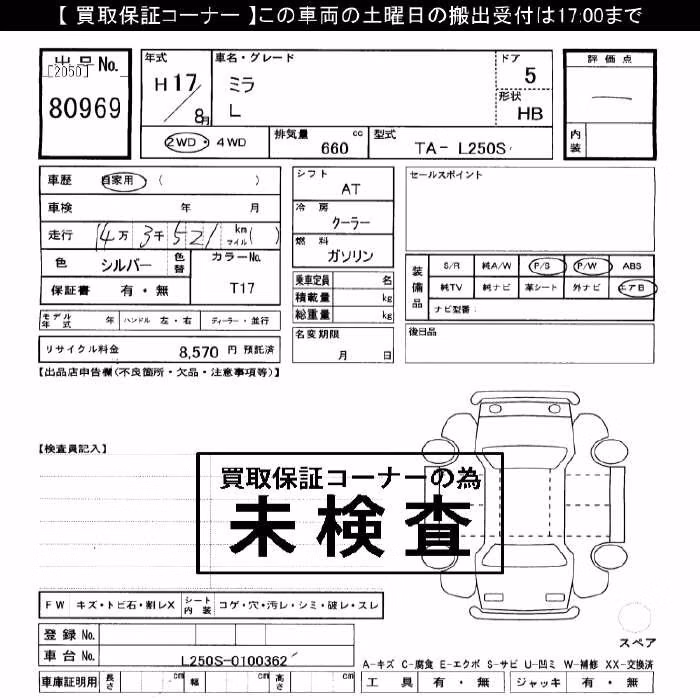 【 買取保証コーナー 】この車両の土曜日の搬出受付は17:00まで
出品No.
[2050]
80969
年式
H17
8月
車名・グレード
ミラ
L
ドア
5
形状
HB
評価点
—
内装
2WD・4WD
排気量 660 cc
型式 TA- L250S
車歴 自家用 ( )
車検 年 月
走行 14万 3千 521 km マイル ( )
色 シルバー 色替
カラーNo.
T17
保証書 有・無
シフト
AT
冷房
クーラー
燃料
ガソリン
乗車定員 名
積載量 kg
総重量 kg
名変期限
月 日
セールスポイント
装備品
S/R 純A/W P/S P/W ABS
純TV 純ナビ 革シート 外ナビ エアB
ナビ型番:
後日品
モデル年式 年 ハンドル 左・右 ディーラー・並行
リサイクル料金 8,570 円 預託済
【出品店申告欄(不良箇所・欠品・注意事項等)】
【検査員記入】
買取保証コーナーの為
未検査
FW キズ・トビ石・割レX シート内装 コゲ・穴・汚レ・シミ・破レ・スレ
登録No.
車台No. L250S-0100362
車庫証明用 長さ cm 幅 cm 高さ cm
スペア
A-キズ C-腐食 E-エクボ S-サビ U-凹ミ W-補修 XX-交換済
工具 有・無 ジャッキ 有・無